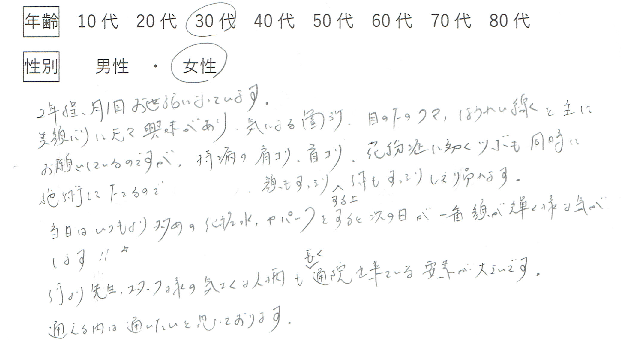 年齢 10代 20代 30代 40代 50代 60代 70代 80代
性別 男性 ・ 女性
2年程、月1回お世話になっています。
美線に元々興味があり、気になる箇所、目の下のクマ、ほうれい線を主に
お願いしているのですが、持病の肩コリ、首コリ、花粉症に効くツボも同時に
施術して下さるので 顔もすっきり、体もすっきりして帰れます。
当日はいつもより多めの化粧水、やパックをすると次の日が一番顔が輝く様な気が
します!!
何より先生、スタッフ様の気さくな人柄も長く通院出来ている要素が大きいです。
通える内は通いたいと思っております。